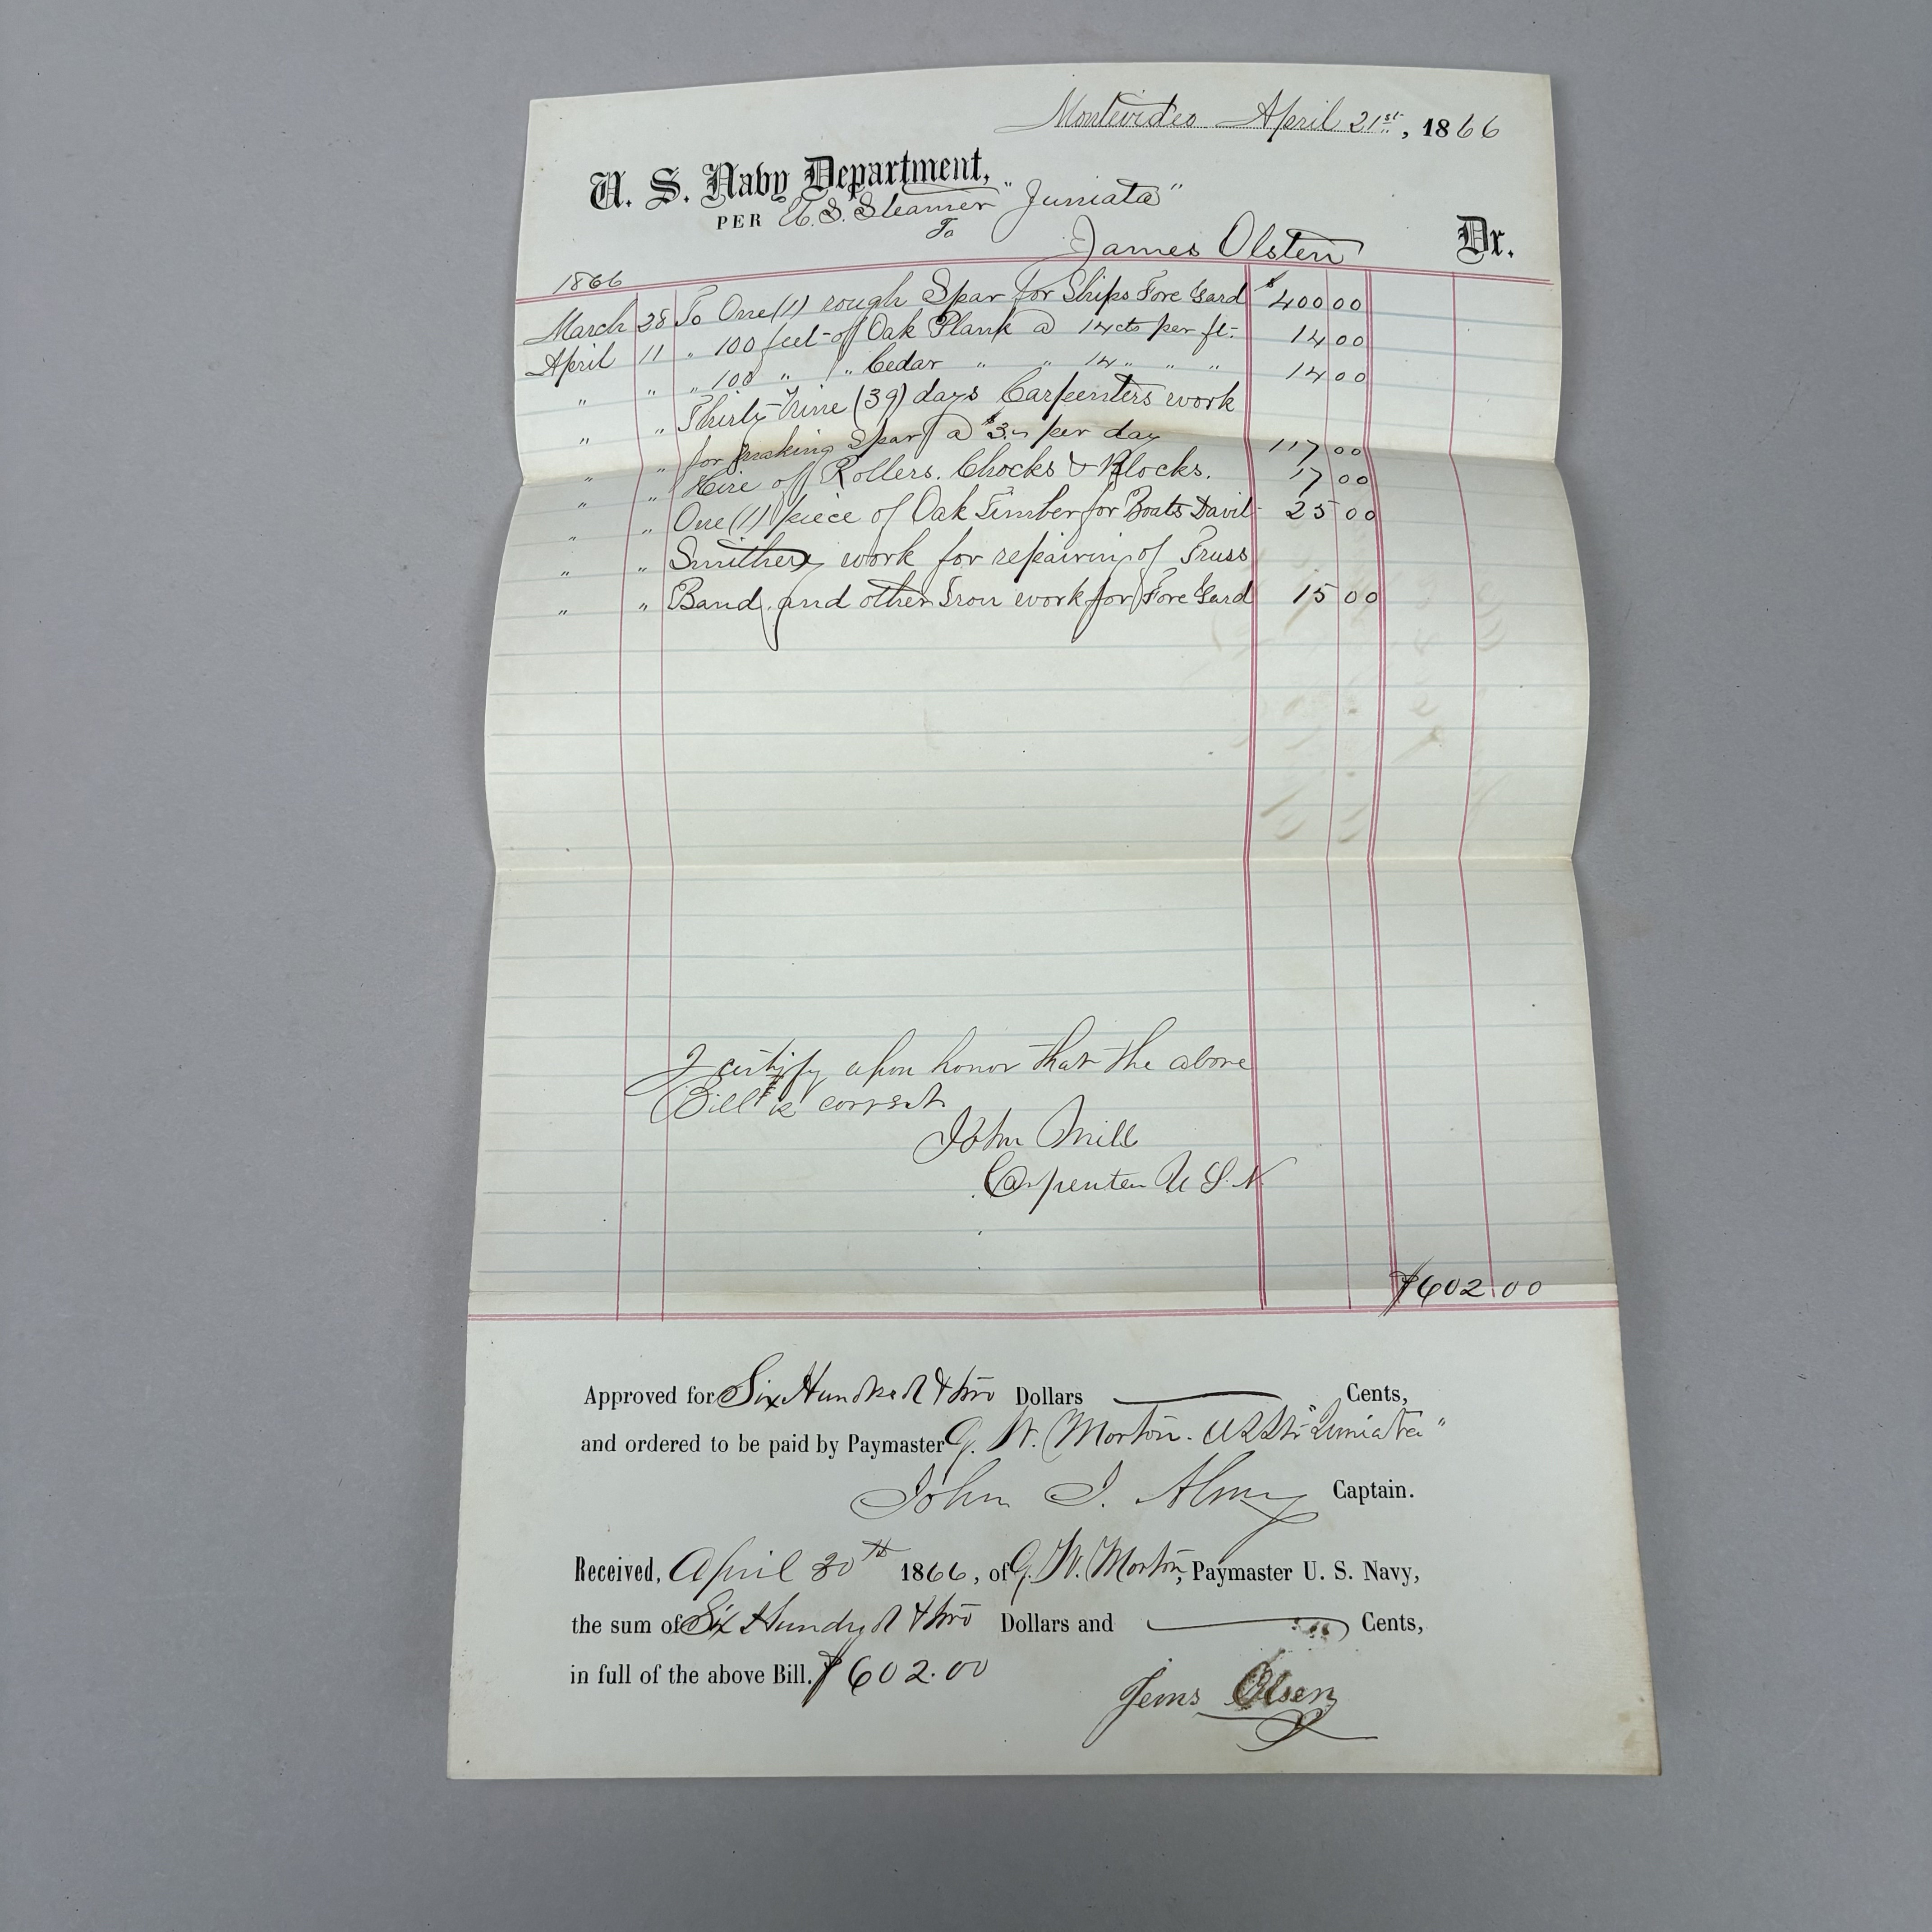 Montevideo April 21st, 1866
U. S. Navy Department,
PER U.S. Steamer "Juniata"
To
James Olsten Dr.
1866
March 28 To One (1) rough Spar for Ships Fore Yard $400 00
April 11 " 100 feet of Oak Plank @ 14 cts per ft. 14 00
" " " 100 " " Cedar " " 14 " " " 14 00
" " Thirty-Nine (39) days Carpenters work
" " for making Spar @ $3.00 per day 117 00
" " Hire of Rollers. Chocks & Blocks. 17 00
" " One (1) piece of Oak Timber for Boats Davit 25 00
" " Smithery work for repairing of Truss
" " Band, and other Iron work for Fore Yard 15 00
I certify upon honor that the above
Bill is correct
John Mill
Carpenter U S. N
$602.00
Approved for Six Hundred & two Dollars Cents,
and ordered to be paid by Paymaster G. W. Morton. USStr "Juniata"
John J. Almy Captain.
Received, April 30th 1866, of G. W. Morton, Paymaster U. S. Navy,
the sum of Six Hundred & two Dollars and Cents,
in full of the above Bill. $602.00
Jems Olsen